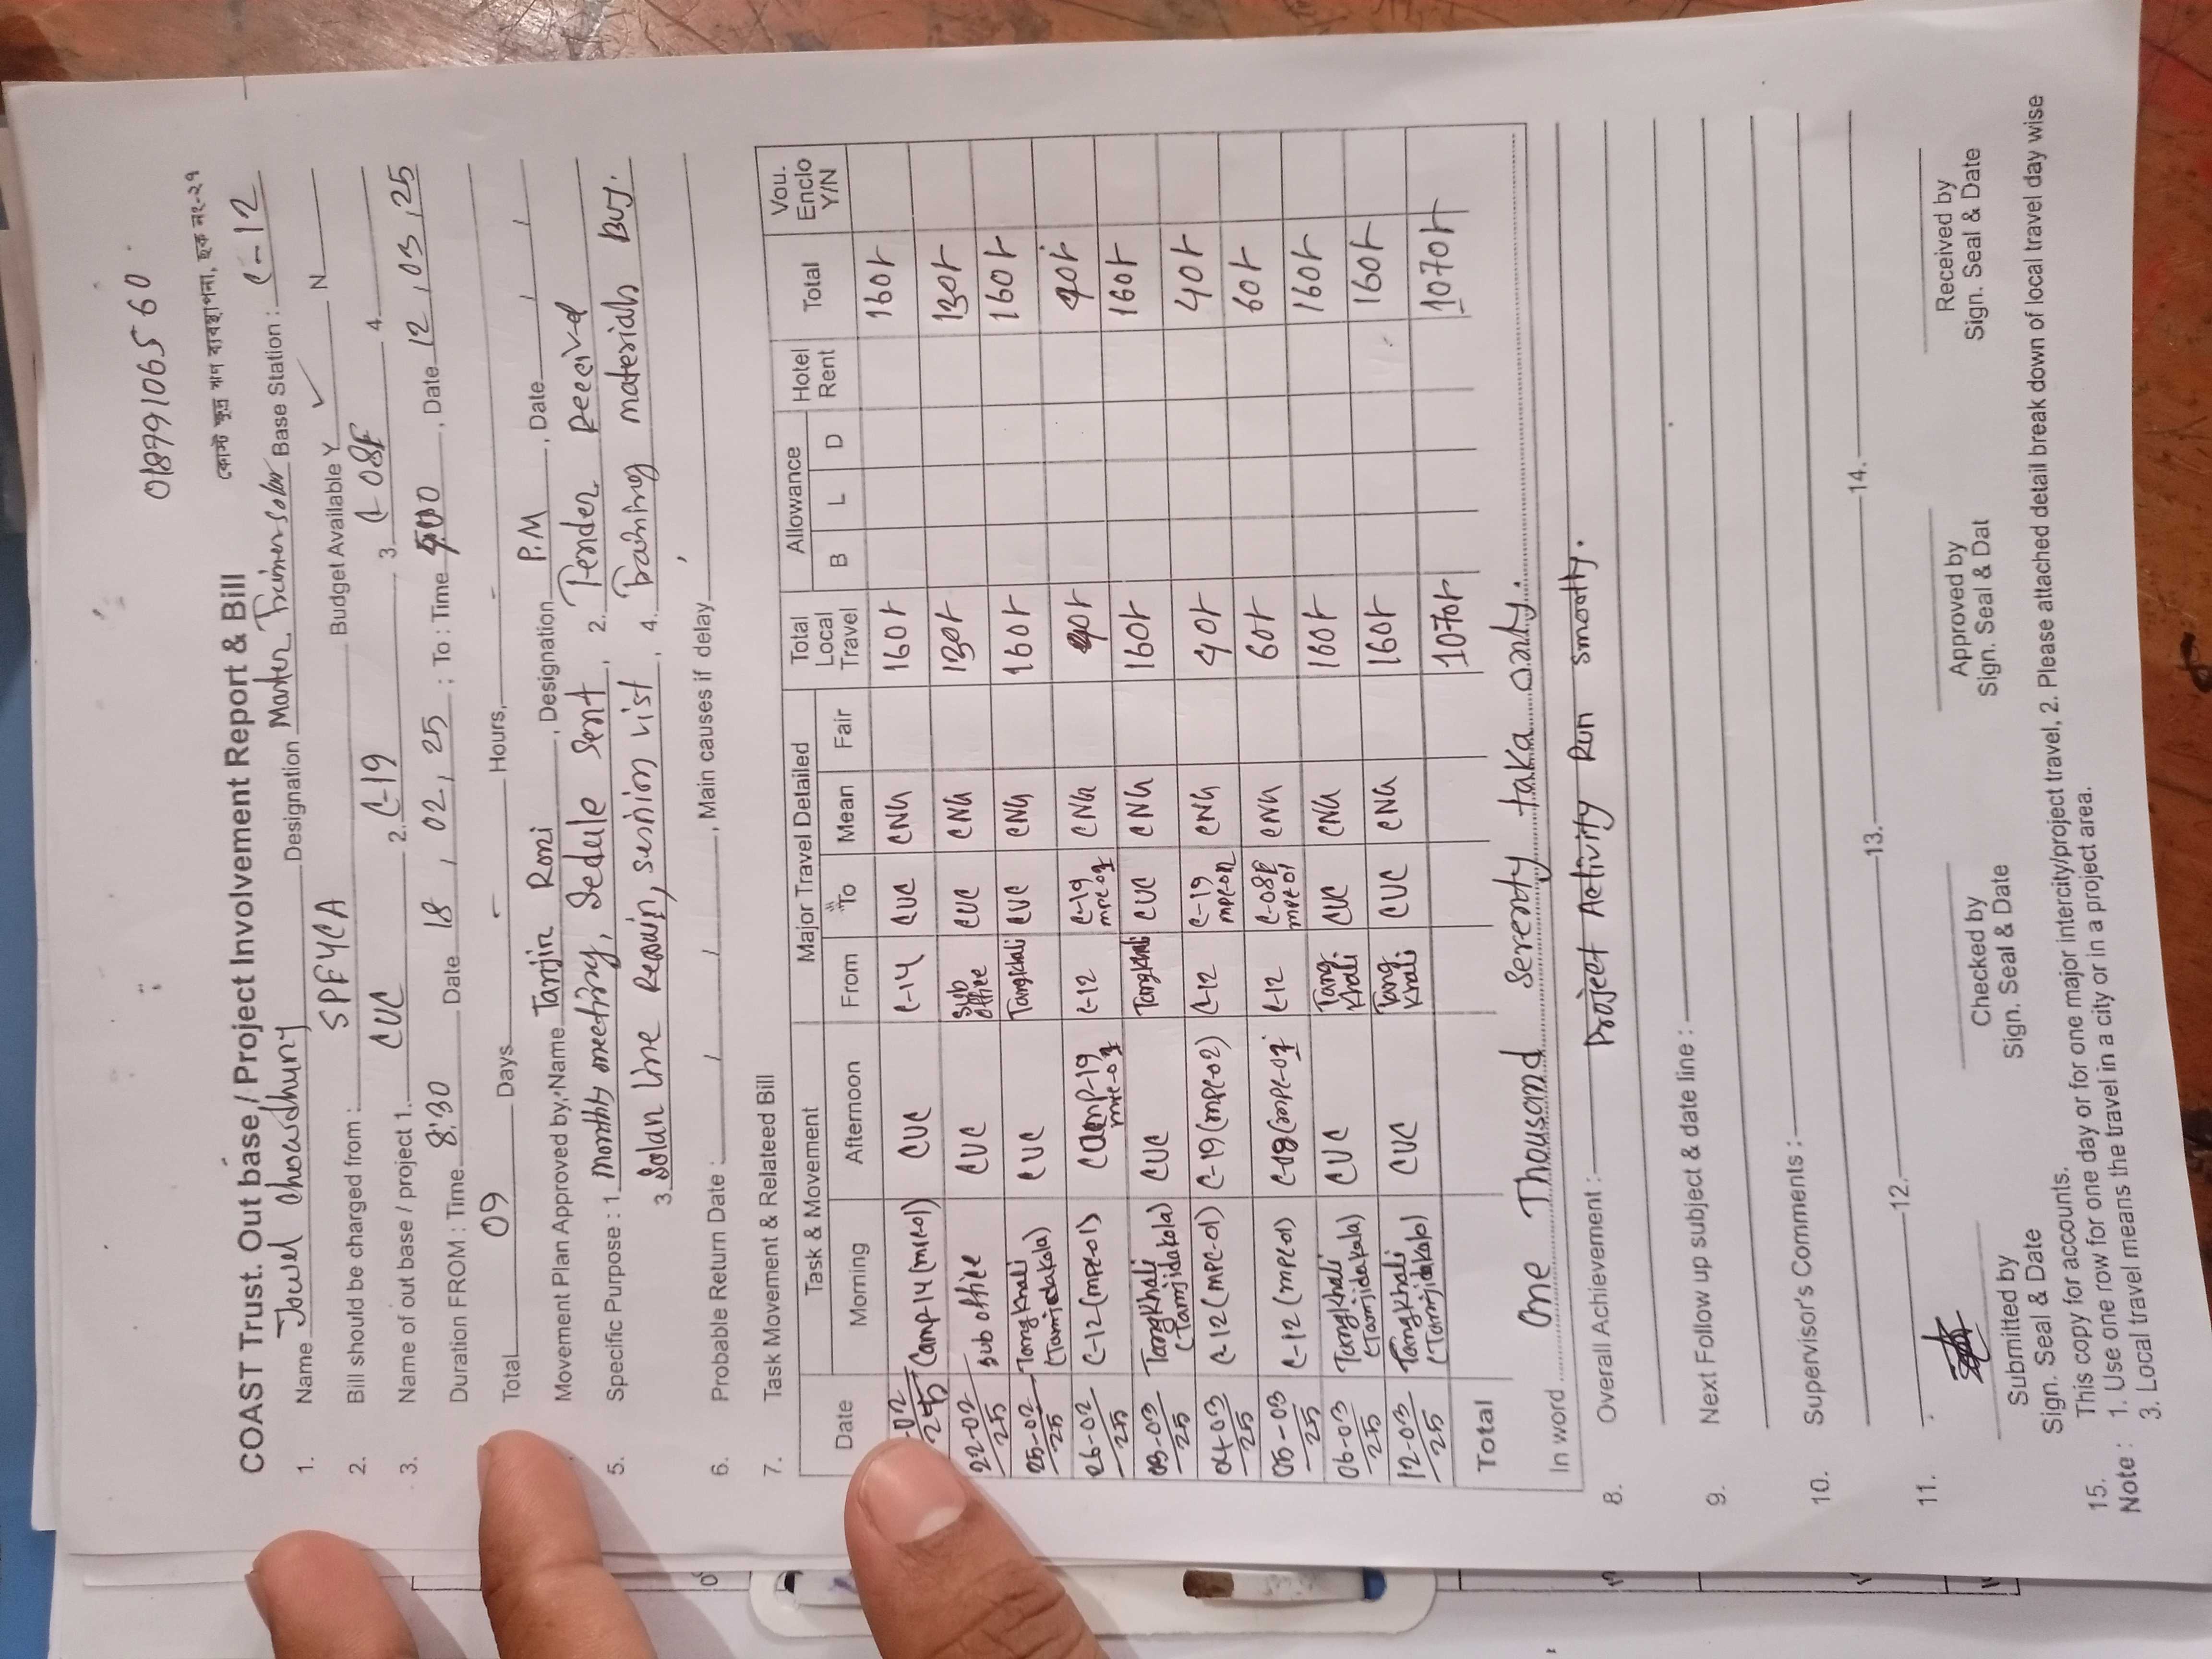 01899106560
কোস্ট ক্ষুদ্র ঋণ ব্যবস্থাপনা, ছক নং-২৭
COAST Trust. Out base / Project Involvement Report & Bill
1. Name Jowel chowdhury Designation Master Trainer solar Base Station : C-12
2. Bill should be charged from : SPF4CA Budget Available Y ✓ N
3. Name of out base / project 1. CUC 2. C-19 3. C-08E 4.
Duration FROM : Time 8:30 Date 18 , 02 , 25 : To : Time 500 , Date 12 , 03 , 25
Total 09 Days Hours,
Movement Plan Approved by, Name Tamjir Roni , Designation P.M , Date / /
5. Specific Purpose : 1. monthly meeting, Sedule Sent , 2. Tender Received
3. Solan line Repair, seshion list , 4. Training materials Buy.
6. Probable Return Date : / / , Main causes if delay
7. Task Movement & Relateed Bill
Date Task & Movement Major Travel Detailed Total Local Travel Allowance Hotel Rent Total Vou. Enclo Y/N
Morning Afternoon From To Mean Fair B L D
-02 25 Camp-14 (mpc-01) CUC C-14 CUC CNG 160/- 160/-
22-02 25 Sub office CUC Sub office CUC CNG 130/- 130/-
25-02 25 Tangkhali (Tamjidakola) CUC Tangkhali CUC CNG 160/- 160/-
26-02 25 C-12 (mpc-01) Camp-19 C-12 C-19 CNG 40/- 40/-
03-03 25 Tangkhali (Tamjidakola) CUC Tangkhali CUC CNG 160/- 160/-
04-03 25 C-12 (mpc-01) C-19 (mpc-02) C-12 C-19 mpc-02 CNG 40/- 40/-
05-03 25 C-12 (mpc-01) C-08 C-12 C-08E mpc-01 CNG 60/- 60/-
06-03 25 Tangkhali (Tamjidakala) CUC Tang khali CUC CNG 160/- 160/-
12-03 25 Tangkhali (Tamjidakala) CUC Tang khali CUC CNG 160/- 160/-
Total 1070/- 1070/-
In word One Thousand Seventy taka only.
8. Overall Achievement : Project Activity Run smoothly.
9. Next Follow up subject & date line :
10. Supervisor's Comments :
11. 12. 13. 14.
Submitted by Checked by Approved by Received by
Sign. Seal & Date Sign. Seal & Date Sign. Seal & Dat Sign. Seal & Date
15. This copy for accounts.
Note : 1. Use one row for one day or for one major intercity/project travel, 2. Please attached detail break down of local travel day wise
3. Local travel means the travel in a city or in a project area.